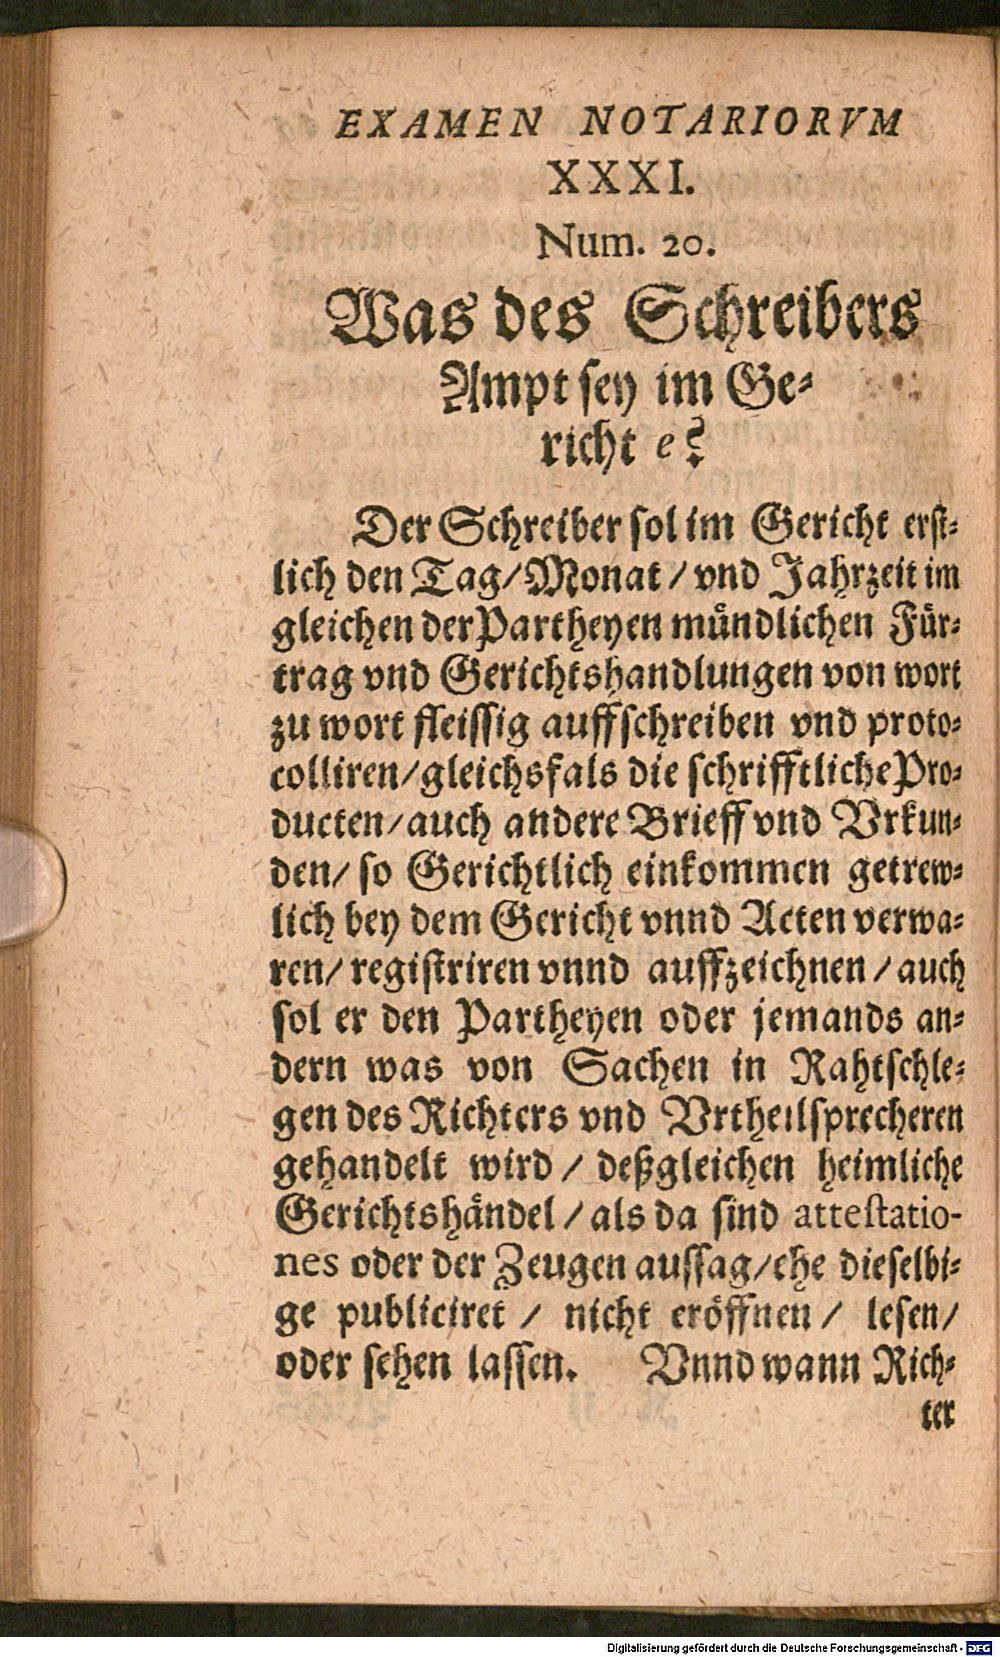 EXAMEN NOTARIORVM
XXXI.
Num. 20.
Was des Schreibers
Ampt sey im Ge⸗
richt e?
Der Schreiber sol im Gericht erst⸗
lich den Tag/Monat/vnd Jahrzeit im
gleichen der Partheyen mündlichen Für⸗
trag vnd Gerichtshandlungen von wort
zu wort fleissig auffschreiben vnd proto⸗
colliren/gleichsfals die schrifftliche Pro⸗
ducten/auch andere Brieff vnd Vrkun⸗
den/ so Gerichtlich einkommen getrew⸗
lich bey dem Gericht vnnd Acten verwa⸗
ren/ registriren vnnd auffzeichnen/auch
sol er den Partheyen oder jemands an⸗
dern was von Sachen in Rahtschle⸗
gen des Richters vnd Vrtheilsprecheren
gehandelt wird/ deßgleichen heimliche
Gerichtshändel/als da sind attestatio-
nes oder der Zeugen aussag/ehe dieselbi⸗
ge publiciret/ nicht eröffnen/ lesen/
oder sehen lassen. Vnnd wann Rich⸗
ter
Digitalisierung gefördert durch die Deutsche Forschungsgemeinschaft - DFG